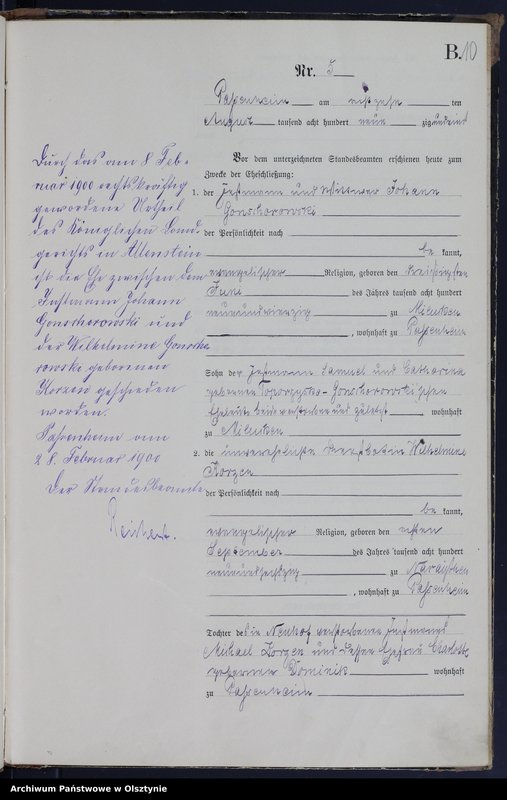 B. 10
Nr. 5
Passenheim am achtzehn ten
August tausend acht hundert neun zig
Vor dem unterzeichneten Standesbeamten erschienen heute zum
Zwecke der Eheschließung:
1. der Instmann und Wittwer Johann
Gonschorowski
der Persönlichkeit nach
be kannt,
evangelischer Religion, geboren den
Juni des Jahres tausend acht hundert
neunundvierzig zu Milucken
, wohnhaft zu Passenheim
Sohn der Instmann Samuel und Catharina
geborner Gonschorowskischen
Eheleute, beide verstorben und zuletzt wohnhaft
zu Milucken
2. die unverehelichte Wilhelmine
Korzen
der Persönlichkeit nach
be kannt,
evangelischer Religion, geboren den achten
September des Jahres tausend acht hundert
neunundsechszig zu
, wohnhaft zu Passenheim
Tochter des in Neuhof verstorbenen Instmanns
Michael Korzen und dessen Ehefrau Charlotte
geborner Dominik wohnhaft
zu Passenheim
Durch das am 8 Feb-
ruar 1900 rechtskräftig
gewordene Urtheil
des Königlichen Land-
gerichts in Allenstein
ist die Ehe zwischen dem
Instmann Johann
Gonschorowski und
der Wilhelmine Gonscho
rowski geborenen
Korzen geschieden
worden.
Passenheim am
28. Februar 1900
Der Standesbeamte
Archiwum Państwowe w Olsztynie